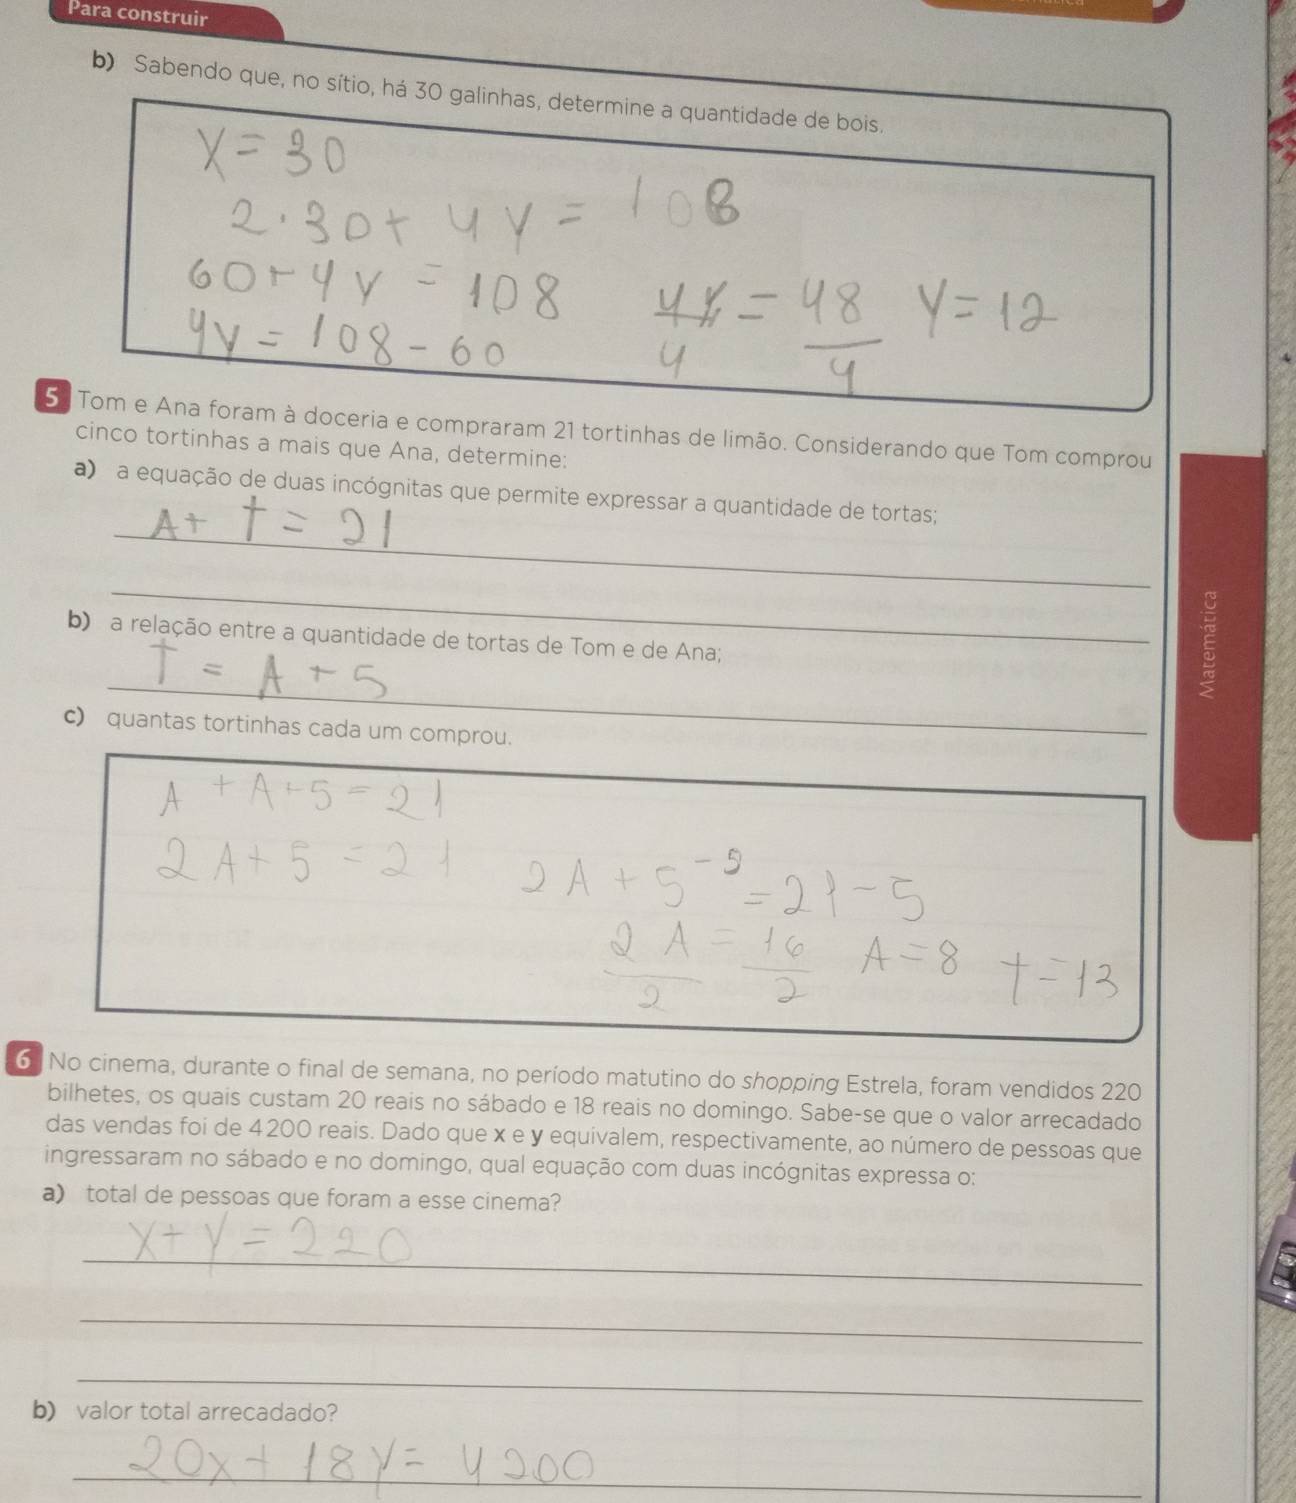 Para construir
b) Sabendo que, no sítio, há 30 galinhas, determine a quantidade de bois.
x = 30
2·30 + 4y = 108
60 + 4y = 108
4y = 108 - 60
4y/4 = 48/4 y = 12
5 Tom e Ana foram à doceria e compraram 21 tortinhas de limão. Considerando que Tom comprou
cinco tortinhas a mais que Ana, determine:
a) a equação de duas incógnitas que permite expressar a quantidade de tortas;
A + T = 21
b) a relação entre a quantidade de tortas de Tom e de Ana;
T = A + 5
c) quantas tortinhas cada um comprou.
A + A + 5 = 21
2A + 5 = 21
2A + 5 - 5 = 21 - 5
2A/2 = 16/2 A = 8 T = 13
6 No cinema, durante o final de semana, no período matutino do shopping Estrela, foram vendidos 220
bilhetes, os quais custam 20 reais no sábado e 18 reais no domingo. Sabe-se que o valor arrecadado
das vendas foi de 4200 reais. Dado que x e y equivalem, respectivamente, ao número de pessoas que
ingressaram no sábado e no domingo, qual equação com duas incógnitas expressa o:
a) total de pessoas que foram a esse cinema?
x + y = 220
b) valor total arrecadado?
20x + 18y = 4200
Matemática